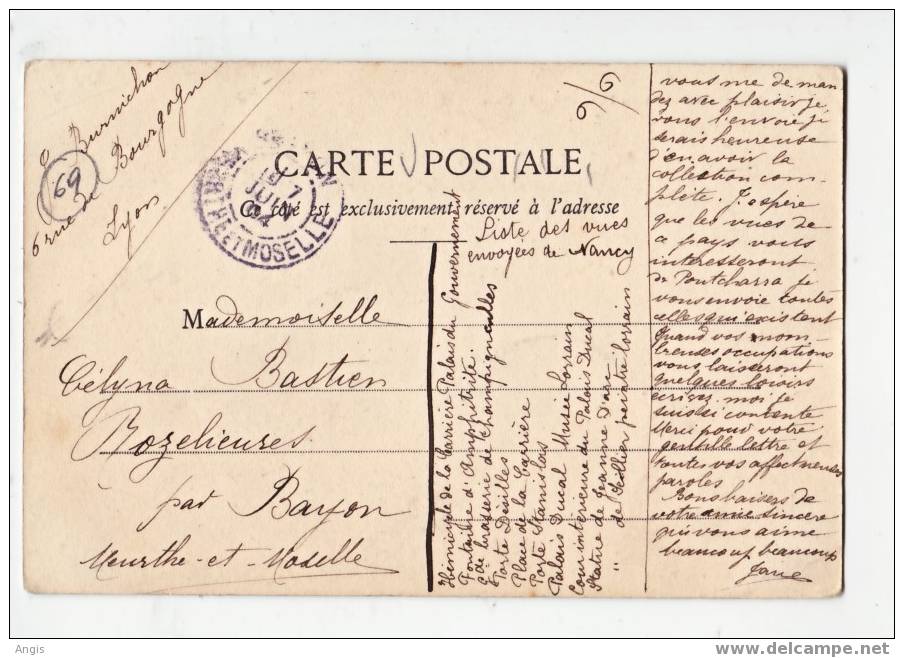 69
E Burnichon
6 rue de Bourgogne
Lyon
CARTE POSTALE
Ce côté est exclusivement réservé à l'adresse
7
JUIN
ET MOSELLE
Mademoiselle
Célyna Bastien
Rozelieures
par Bayon
Meurthe-et-Moselle
Liste des vues
envoyées de Nancy
Hémicycle de la Carrière Palais du Gouvernement
Fontaine d'Amphitrite
Gde brasserie de Champigneulles
Porte Désilles
Place de la Carrière
Porte Stanislas
Palais Ducal Musée Lorrain
Cour intérieure du Palais Ducal
Statue de Jeanne d'arc
" de peintre lorrain
vous me deman
dez avec plaisir je
vous l'envoie je
serais heureuse
d'en avoir la
collection com-
plète. J'espère
que les vues de
ce pays vous
intéresseront
de Pontcharra je
vous envoie toutes
celles qui existent
Quand vos nom-
breuses occupations
vous laisseront
quelques loisirs
écrivez-moi je
suis si contente
Merci pour votre
gentille lettre et
toutes vos affectueuses
paroles
Bons baisers de
votre amie sincère
qui vous aime
beaucoup beaucoup
Angis
www.delcampe.net